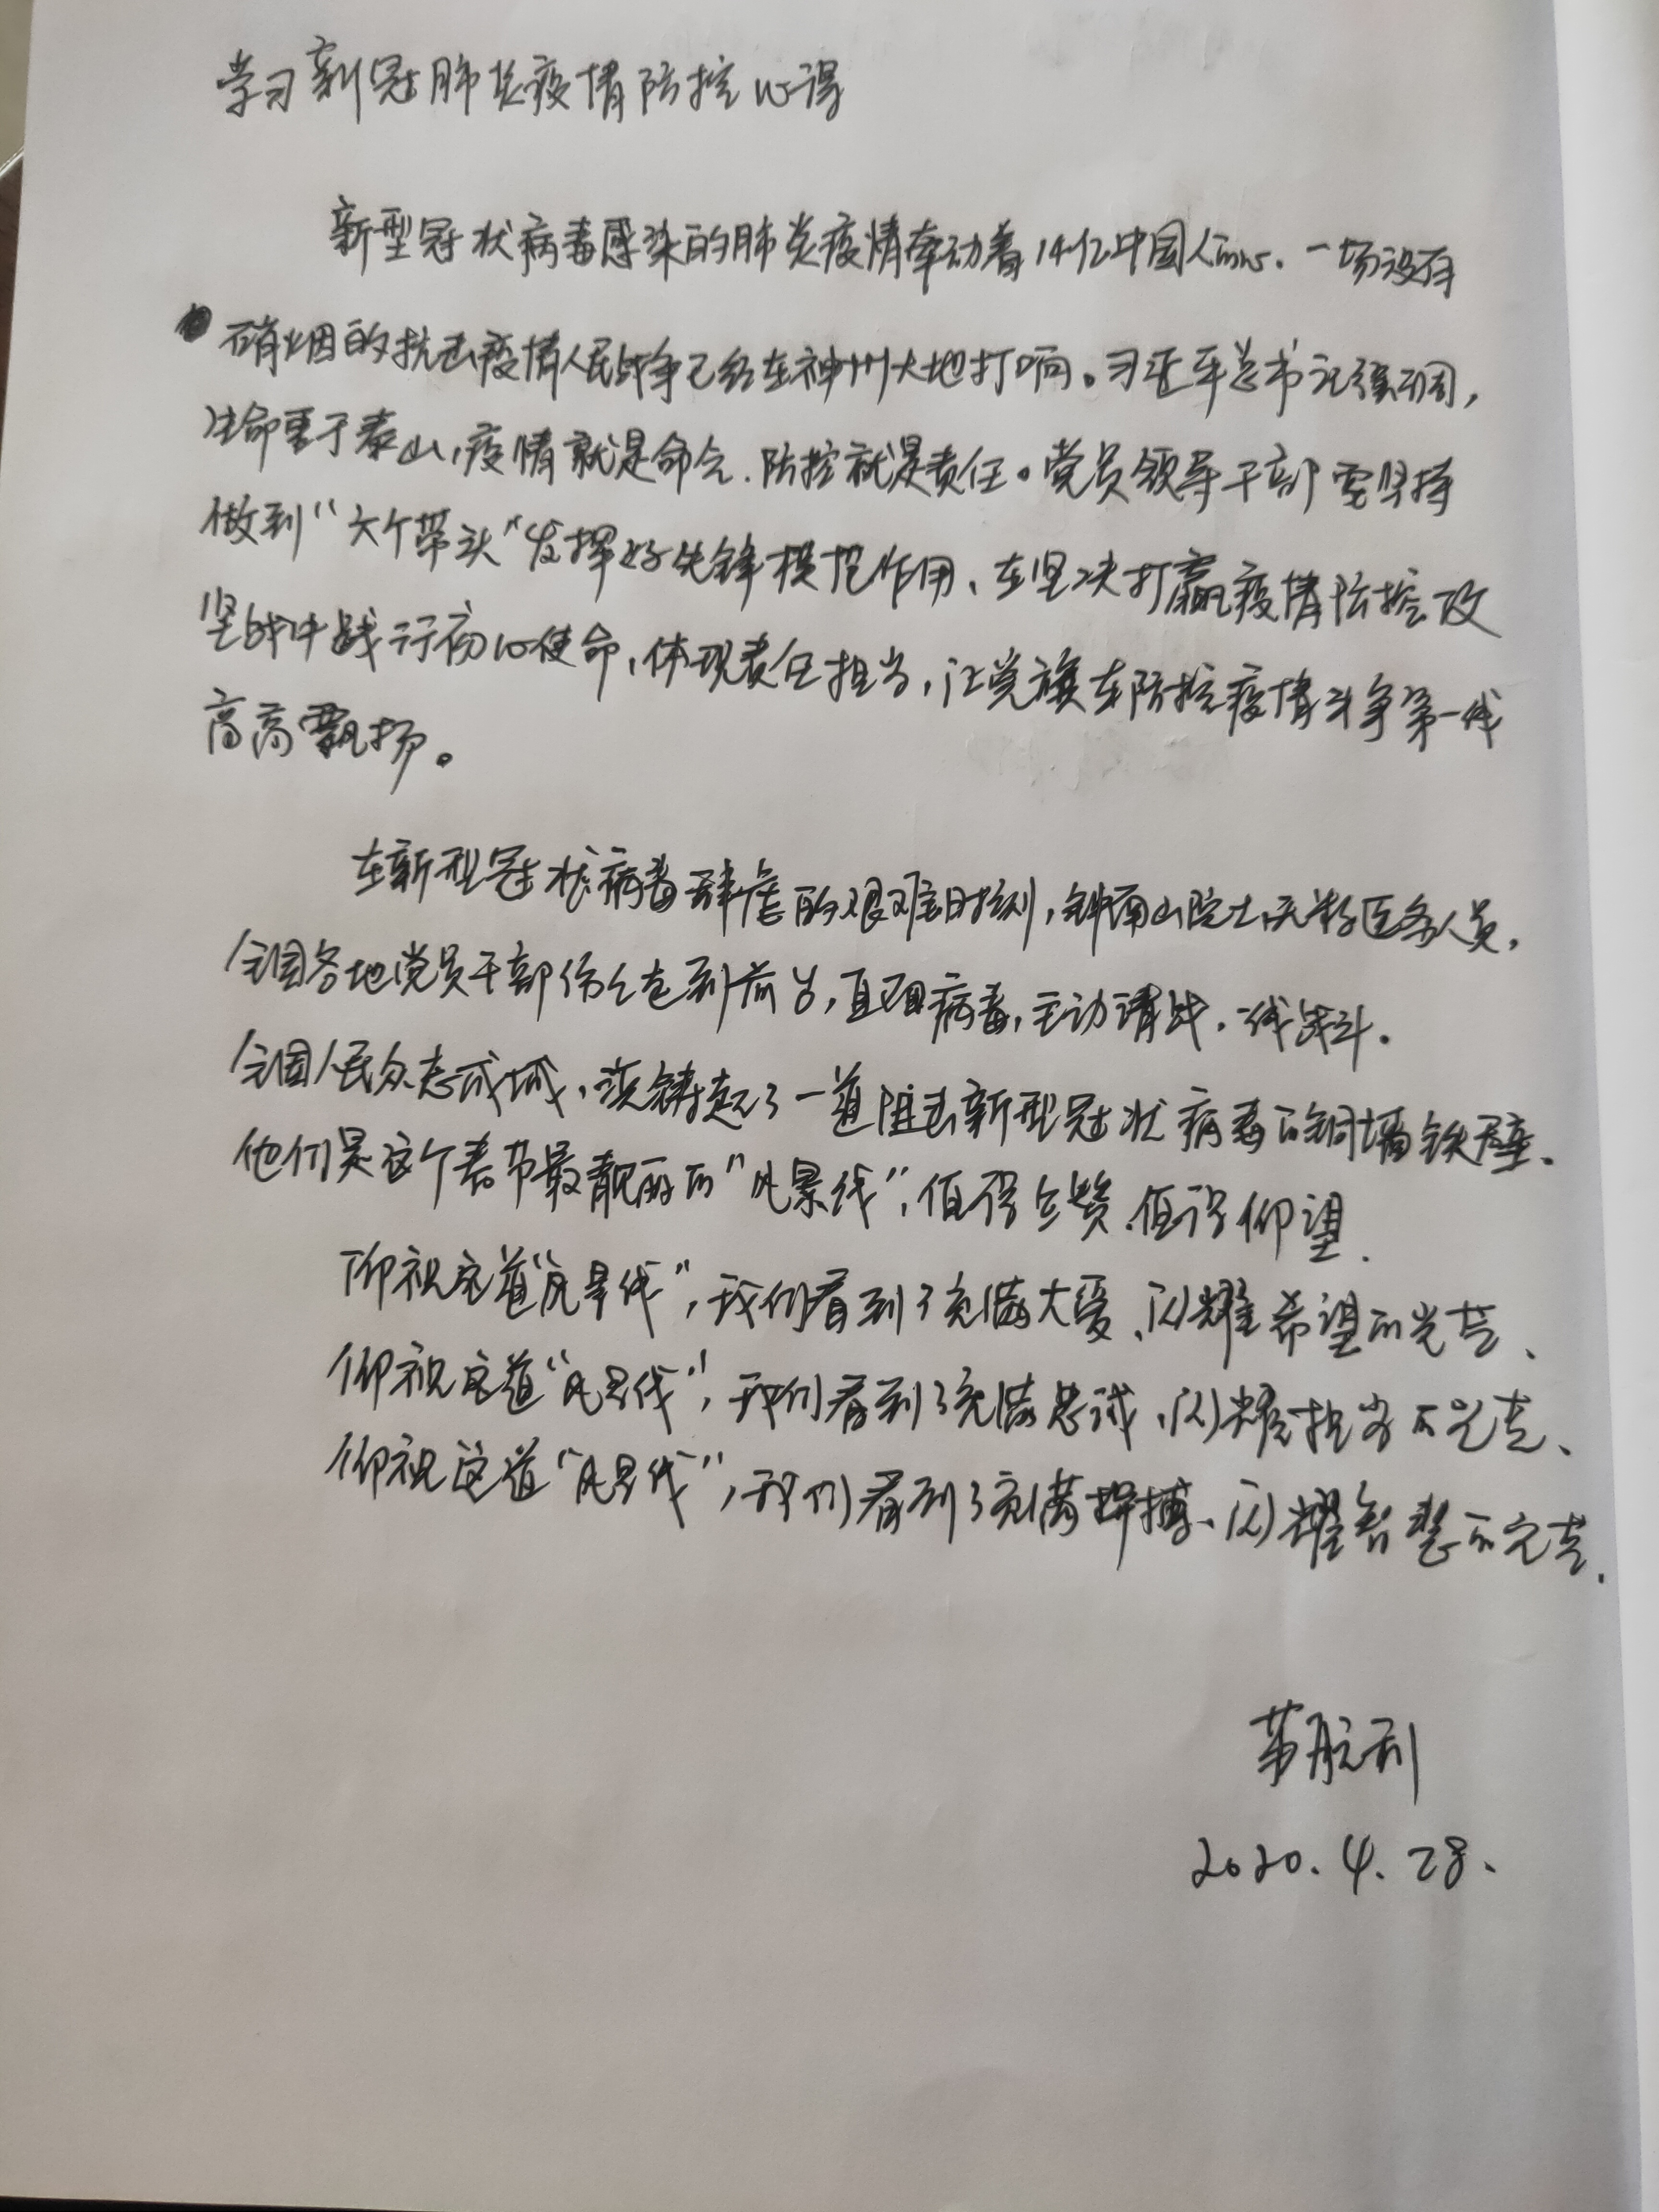 学习新冠肺炎疫情防控心得
新型冠状病毒感染的肺炎疫情牵动着14亿中国人的心.一场没有
硝烟的抗击疫情人民战争已经在神州大地打响。习近平总书记强调,
生命重于泰山,疫情就是命令.防控就是责任。党员领导干部要坚持
做到“六个带头”发挥好先锋模范作用、在坚决打赢疫情防控攻
坚战中践行初心使命,体现责任担当,让党旗在防控疫情斗争第一线
高高飘扬。
在新型冠状病毒肆虐的艰难时刻,钟南山院士医务人员,
全国各地党员干部走到前台,直面病毒,主动请战.一线战斗.
全国人民众志成城,浇铸起了一道阻击新型冠状病毒的铜墙铁壁.
他们是这个春节最靓丽的“风景线”,值得点赞.值得仰望.
仰视这道“风景线”,我们看到了充满大爱、闪耀希望的光芒、
仰视这道“风景线”,我们看到了充满忠诚、闪耀担当的光芒、
仰视这道“风景线”,我们看到了充满拼搏、闪耀智慧的光芒.
2020.4.28.